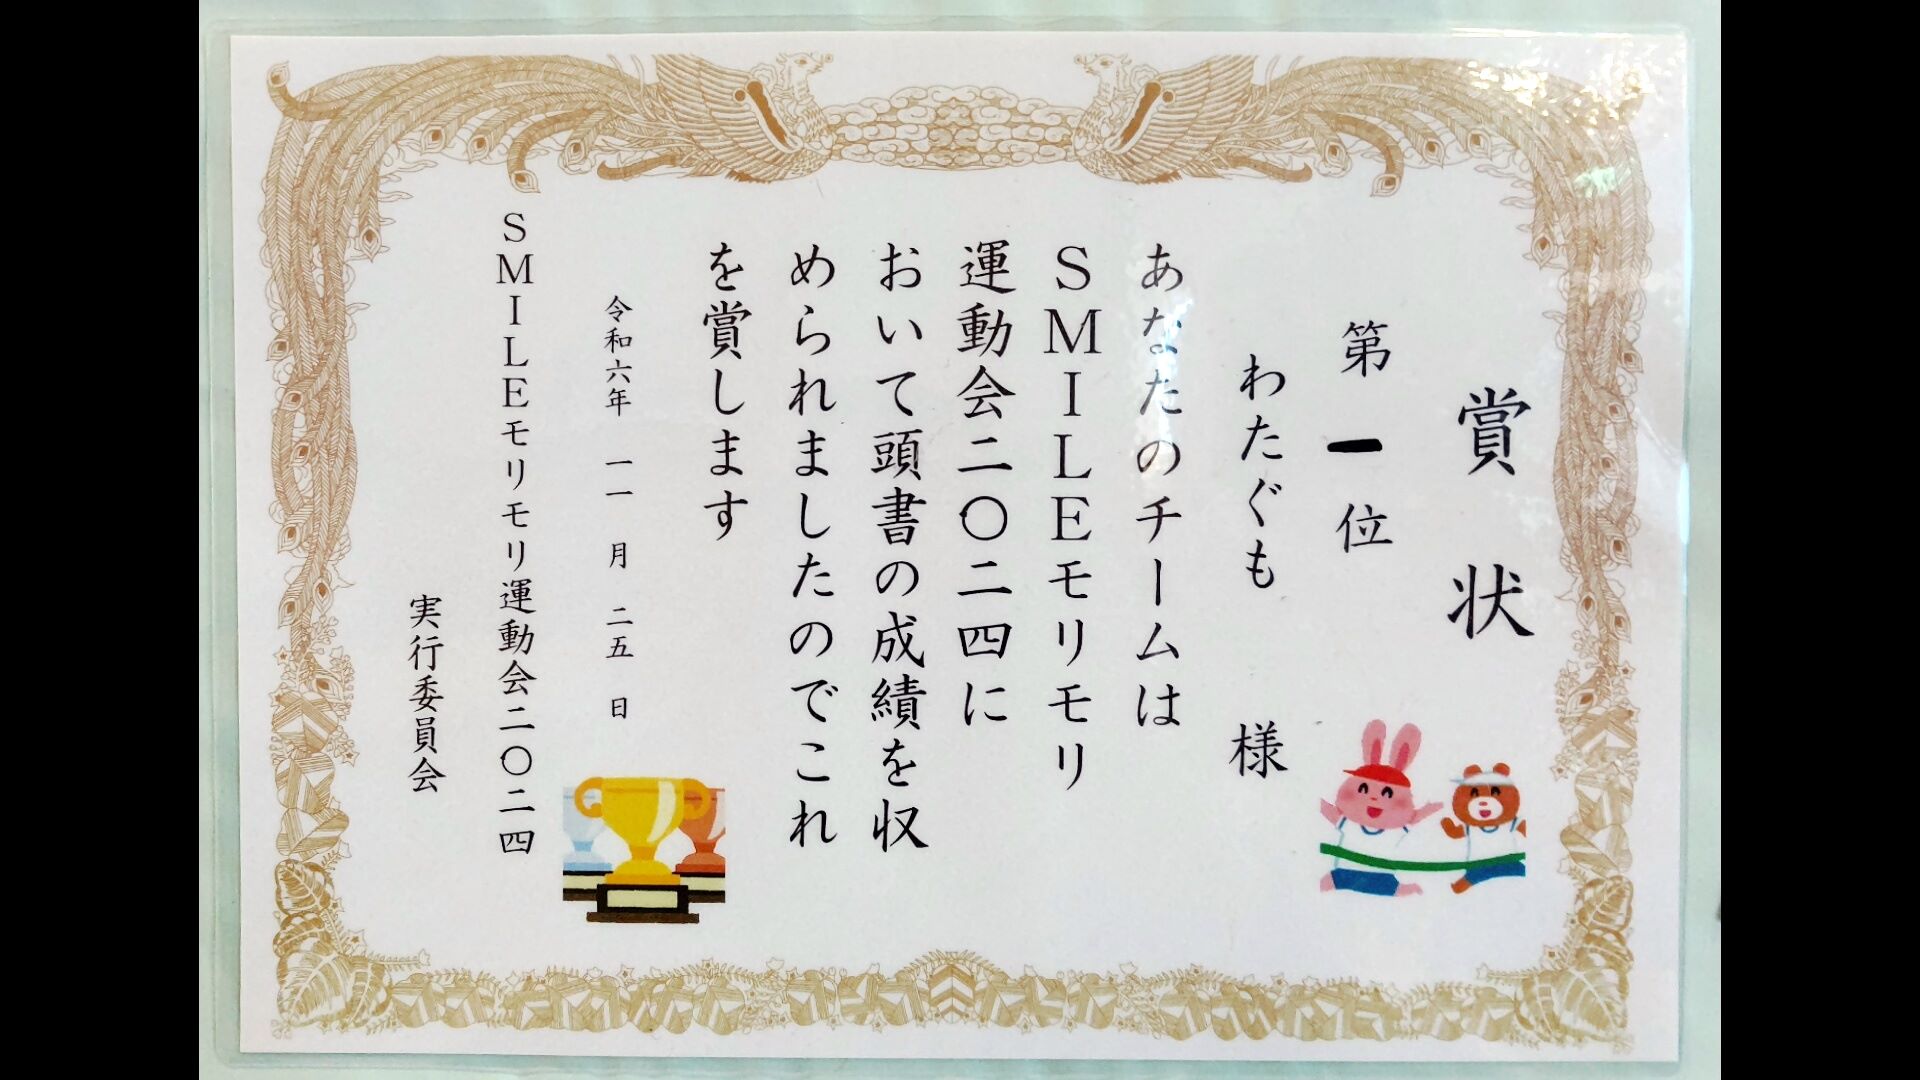 賞状
第一位
わたぐも 様
あなたのチームは
SMILEモリモリ
運動会二〇二四に
おいて頭書の成績を収
められましたのでこれ
を賞します
令和六年 一一月 二五日
SMILEモリモリ運動会二〇二四
実行委員会